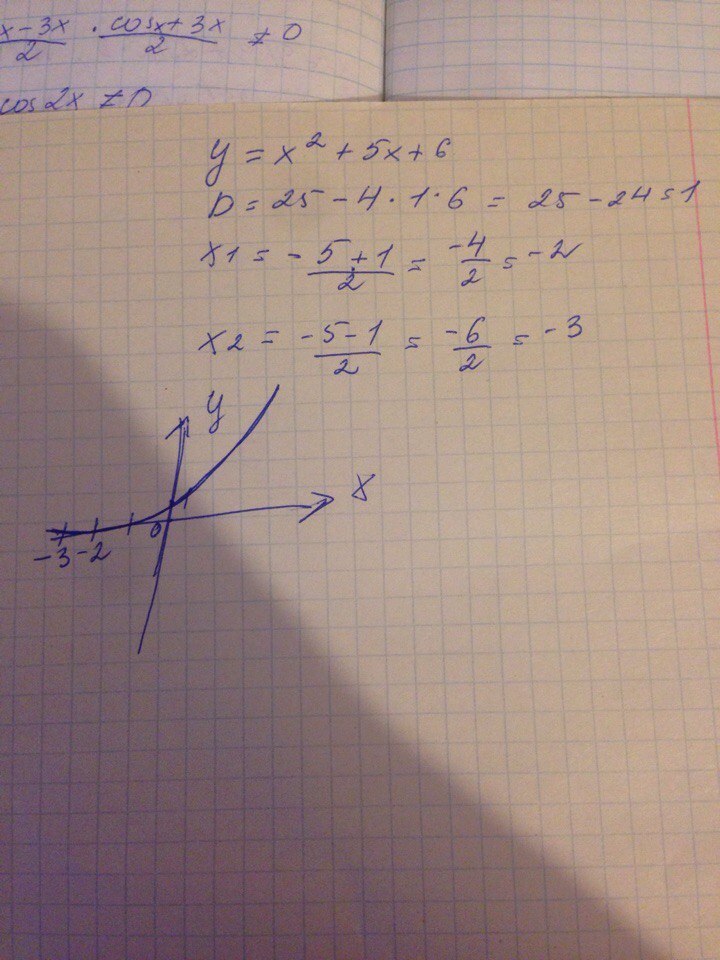 x-3x/2 · cosx+3x/2 ≠ 0
cos 2x ≠ 0
y = x² + 5x + 6
D = 25 - 4 · 1 · 6 = 25 - 24 = 1
x1 = - 5+1/2 = -4/2 = -2
x2 = -5-1/2 = -6/2 = -3
y
x
0
-3 -2